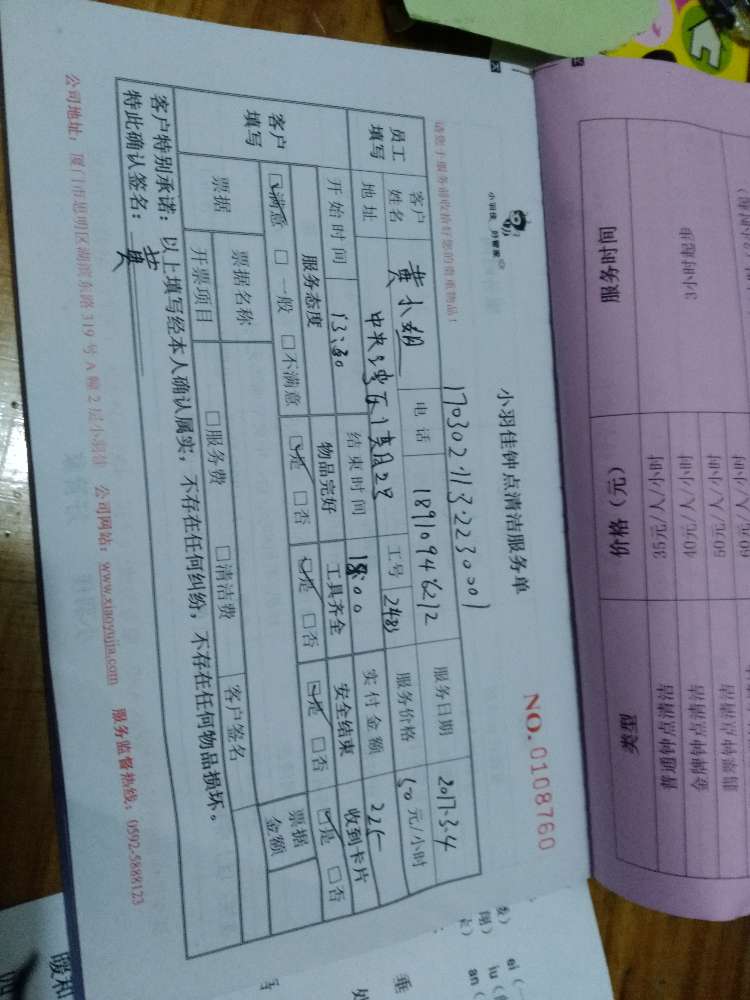 小羽佳 好管家
小羽佳钟点清洁服务单
NO.0108760
170302113·2230001
请您于服务前收拾好您的贵重物品！
员工填写
客户姓名 黄小姐 电话 18910946212 服务日期 2017.3.4
地址 工号 2483 服务价格 50元/小时
开始时间 13:30 结束时间 18:00 实付金额 225
客户填写
服务态度 物品完好 工具齐全 安全结束 收到卡片
☑满意 □一般 □不满意 ☑是 □否 ☑是 □否 ☑是 □否 ☑是 □否
票据 票据名称 客户签名 票据金额
开票项目 □服务费 □清洁费
客户特别承诺：以上填写经本人确认属实，不存在任何纠纷，不存在任何物品损坏。
特此确认签名：黄
公司地址：厦门市思明区湖滨东路319号A幢2层小羽佳 公司网站：www.xiaoyujia.com 服务监督热线：0592-5888123
服务时间 价格（元） 类型
3小时起步
35元/人/小时 普通钟点清洁
40元/人/小时 金牌钟点清洁
50元/人/小时 翡翠钟点清洁
60元/人/小时
ei
iu
an
暖和
垂
处